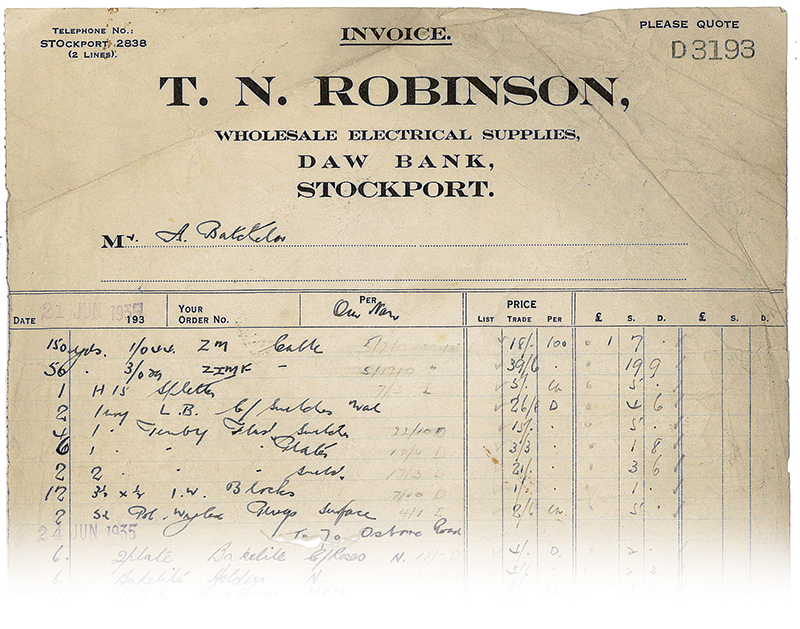 TELEPHONE NO.:
STOCKPORT. 2838
(2 LINES).
INVOICE.
PLEASE QUOTE
D3193
T. N. ROBINSON,
WHOLESALE ELECTRICAL SUPPLIES,
DAW BANK,
STOCKPORT.
Mr. A.
DATE 21 JUN 1935 193 YOUR ORDER NO. PER Our Van LIST PRICE TRADE PER £ S. D. £ S. D.
150 yds. ZM Cable 18/. 100 1 7 .
50 " 3/029 ZXMK " 39/6 " 19 9
1 H 15 Splitter 5/. ea 5 .
2 1way L.B. C/ Switches Wal 26/8 D 4 6
1 " Tenby Flush Switches 15/. 5 .
6 1 " " Plates 3/3 1 8
2 2 " " Switch. 21/. 3 6
12 3½ x ½ I.W. Blocks 1/. 1 .
2 5a Wylex Plugs Surface 2/6 ea 5 .
24 JUN 1935 To 70 Osborne Road
6 2plate Bakelite C/Roses N. 4/. D. 2 .
6 Bakelite Holders N.